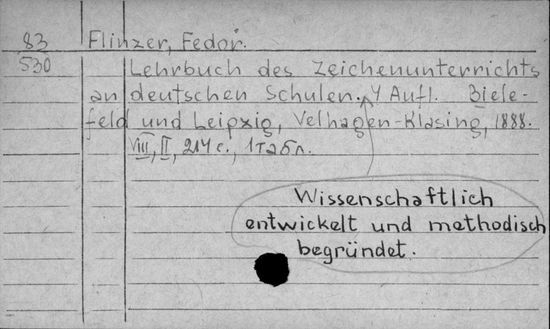 83 Flinzer, Fedor.
530 Lehrbuch des Zeichenunterrichts
an deutschen Schulen. 4 Aufl. Biele-
feld und Leipzig, Velhagen-Klasing, 1888.
VIII, II, 214 с., 1 табл.
Wissenschaftlich
entwickelt und methodisch
begründet.